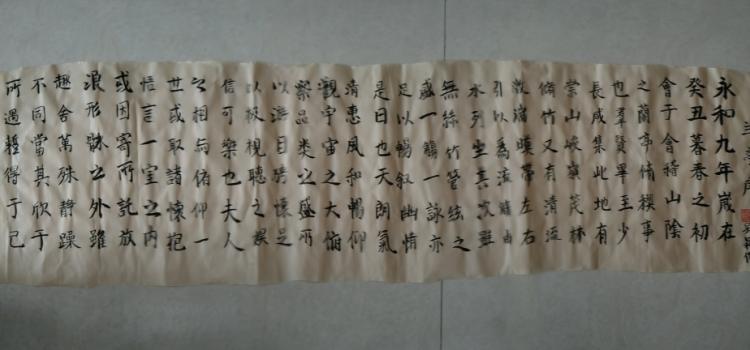 永和九年歲在
癸丑暮春之初
會于會稽山陰
之蘭亭脩禊事
也羣賢畢至少
長咸集此地有
崇山峻嶺茂林
脩竹又有清流
激湍暎帶左右
引以為流觴曲
水列坐其次雖
無絲竹管絃之
盛一觴一詠亦
足以暢叙幽情
是日也天朗氣
清惠風和暢仰
觀宇宙之大俯
察品類之盛所
以遊目騁懷足
以极視聽之娛
信可樂也夫人
之相与俯仰一
世或取諸懷抱
悟言一室之内
或因寄所託放
浪形骸之外雖
趣舍萬殊静躁
不同當其欣于
所遇暫得于己